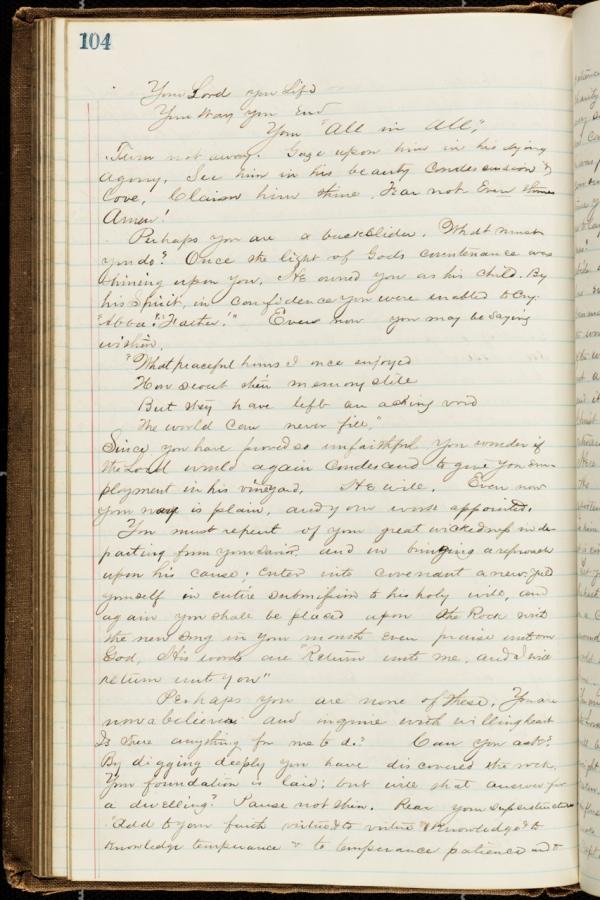 104
Your Lord your Life
Your Way your End
Your "All in All,"
Turn not away. Gaze upon him in his dying
agony, See him in his beauty Condescension &
Love, Claim him thine, Fear not Even
Amen!
Perhaps you are a backslider. What must
you do? Once the light of Gods countenance was
shining upon you, He owned you as his child. By
his Spirit, in confidence you were enabled to Cry.
"Abba! "Father!" Even now you may be saying
within,
"What peaceful hours I once enjoyed
How sweet their memory still
But they have left an aching void
The world Can never fill,"
Since you have proved so unfaithful you wonder if
the Lord would again Condescend to give you em-
ployment in his vineyard. He will. Even now
your way is plain, and your work appointed.
You must repent of your great wickedness in de-
parting from your Savior, and in bringing a reproach
upon his cause; Enter into covenant anew,
yourself in entire submission to his holy will, and
again you shall be placed upon the Rock with
the new song in your mouth Even praise unto our
God, His words are "Return unto me, and I will
return unto you"
Perhaps you are none of these. You are
now a believer and inquire with willing heart
Is there anything for me to do? Can you ask?
By digging deeply you have discovered the rock.
Your foundation is laid; but will that answer for
a dwelling? Pause not then. Rear your superstructure
"Add to your faith virtue & to virtue Knowledge & to
Knowledge temperance & to temperance patience and to